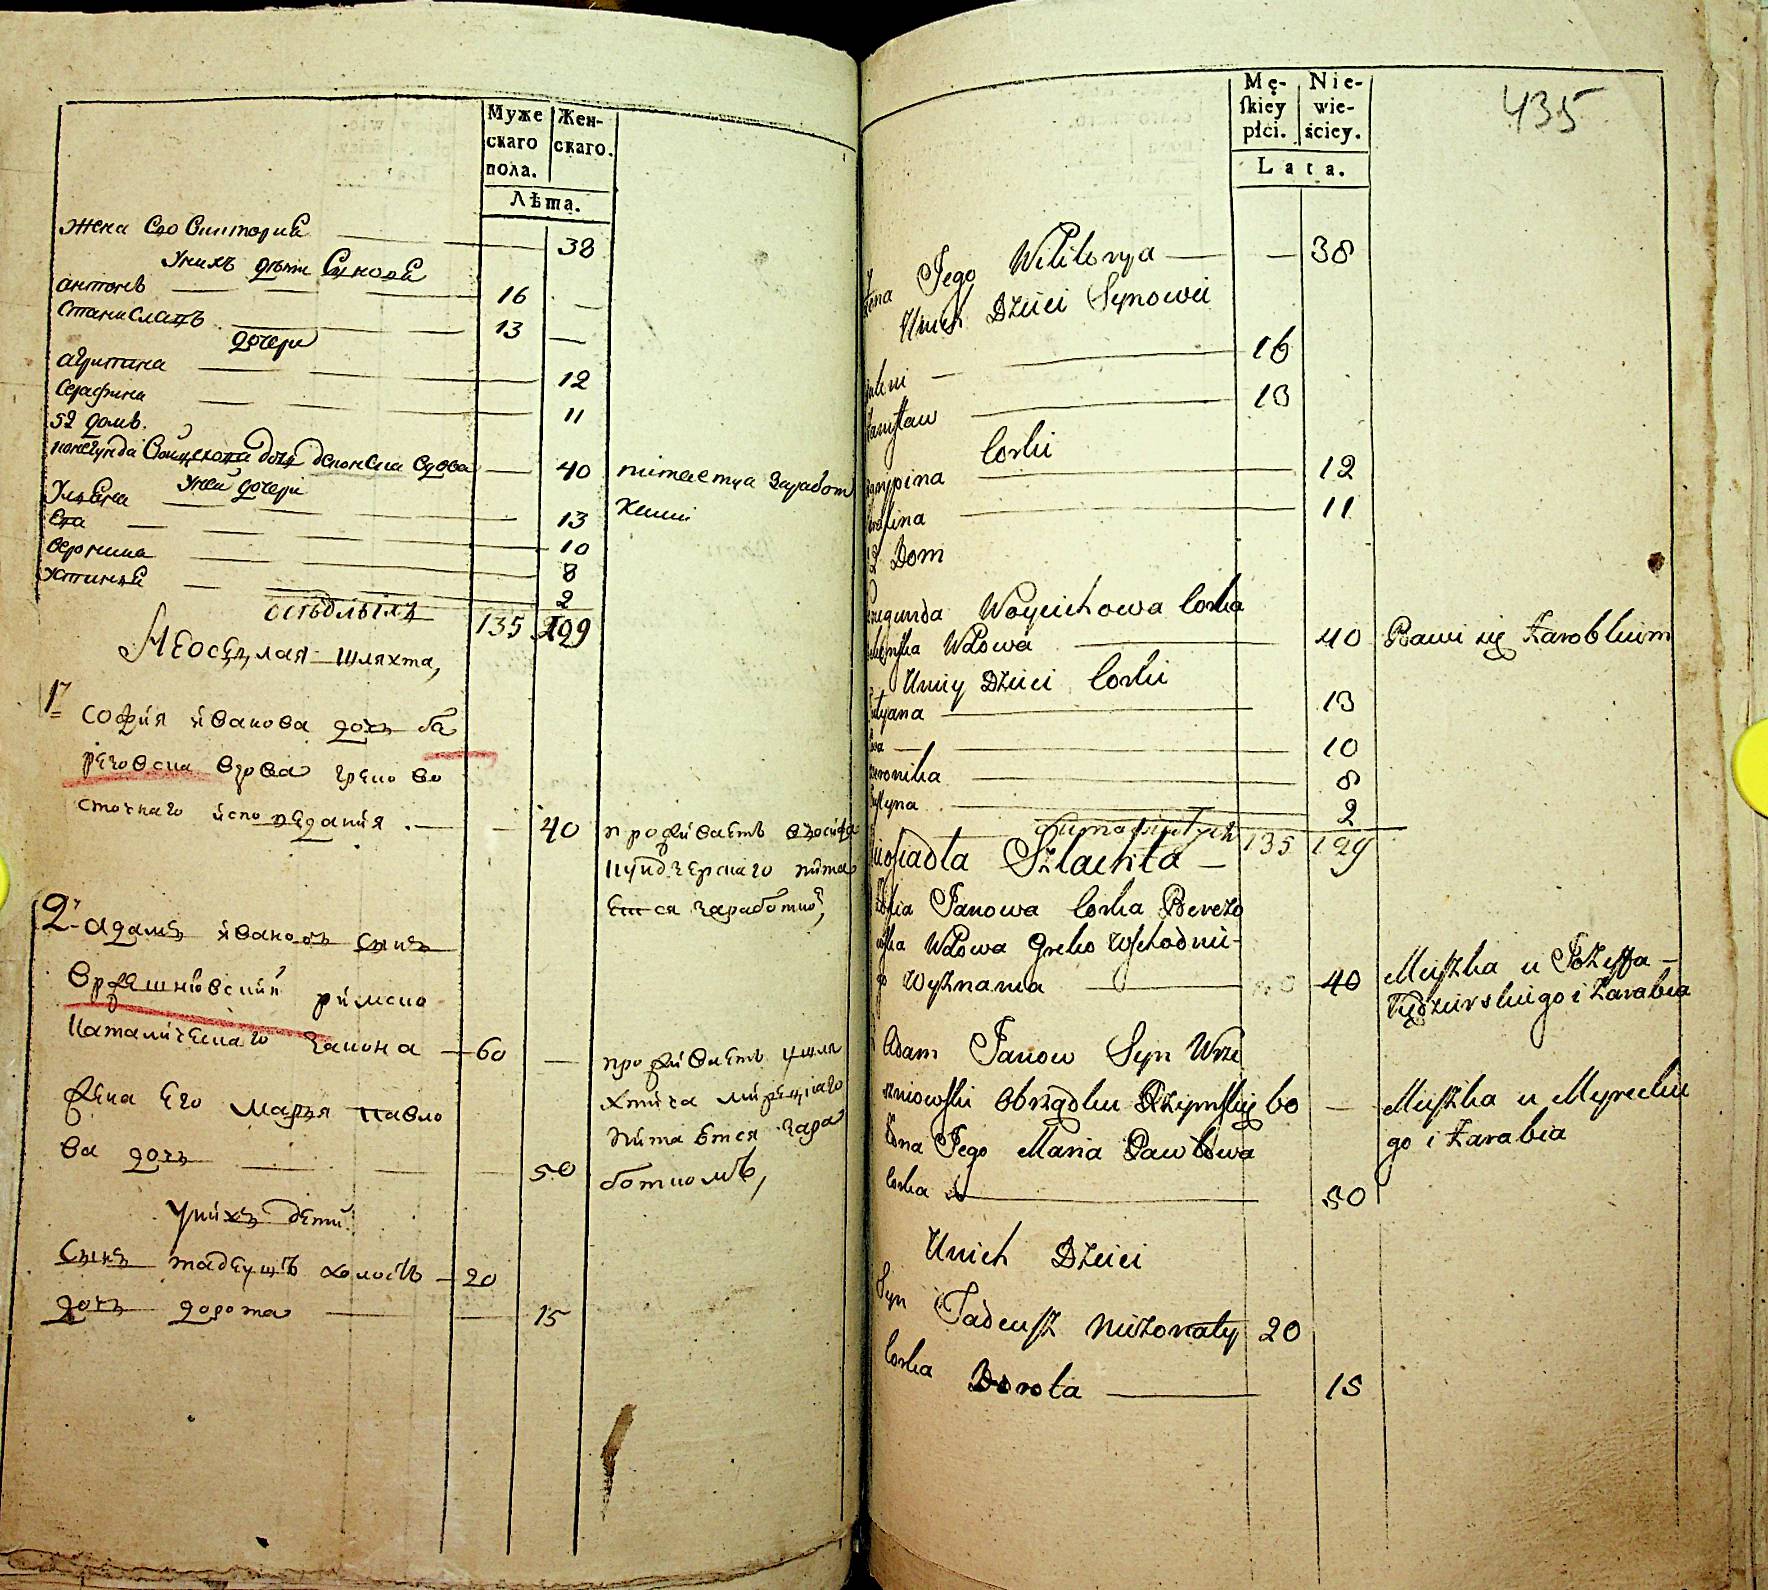 Муже
скаго
пола.
Жен-
скаго.
Лѣта.
жена Его Виктория 38
Унихъ дѣти Синовя
антонъ 16
Станиславъ 13
дочери
агрипина 12
Серафина 11
52 домъ.
конегунда Войцехова дочь вдова 40 питается Заработ
Уней дочери
ками
Улияна 13
Ева 10
вероника 8
Устиния 2
осѣдлыхъ 135 129
Неосѣдлая шляхта,
1. София иванова дочь бе
резовска вдова греко во
сточнаго исповедания. 40 проживаетъ Уюсифа
Кундзерскаго пита
ется заработкой,
2. адамъ ивановъ сынъ
Вржешневский римско
Католическаго закона 60 проживаетъ Ушля
хтича Мирецкаго
жена Его Марья павло
ва дочь 50
питаѣтся зара
боткомъ,
Унихъ дети
Сынъ тадеушъ холостъ 20
дочь дорота 15
435
Mę-
skiey
płci.
Nie-
wie-
ściey.
Lata.
Żona Jego Wiktorya 38
Unich Dzieci Synowie
Antoni 16
Stanisław 13
Corki
Agrypina 12
Serafina 11
52 Dom
Kunegunda Woyciechowa Corka
Wdowa 40 Bawi się Zarobkiem
Uniey Dzieci Corki
13
Ewa 10
Weronika 8
Justyna 2
Summa osiadłych 135 129
Nieosiadła Szlachta
Zofia Janowa Corka Berezo
wska Wdowa Greko Wschodnie-
go Wyznania 40 Mieszka u Jozefa
Kundzerskiego i Zarabia
Adam Janow Syn Wrze
szniewski Obrządku Rzymskię 60 Mieszka u Myreckie
go i Zarabia
Żona Jego Maria Pawłowa
Corka 50
Unich Dzieci
Syn Tadeusz Nieżonaty 20
Corka Dorota 15